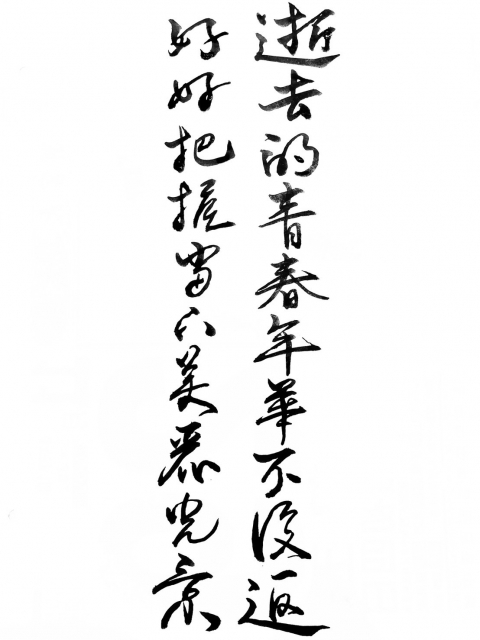 逝去的青春年華不復返
好好把握當下美麗光景